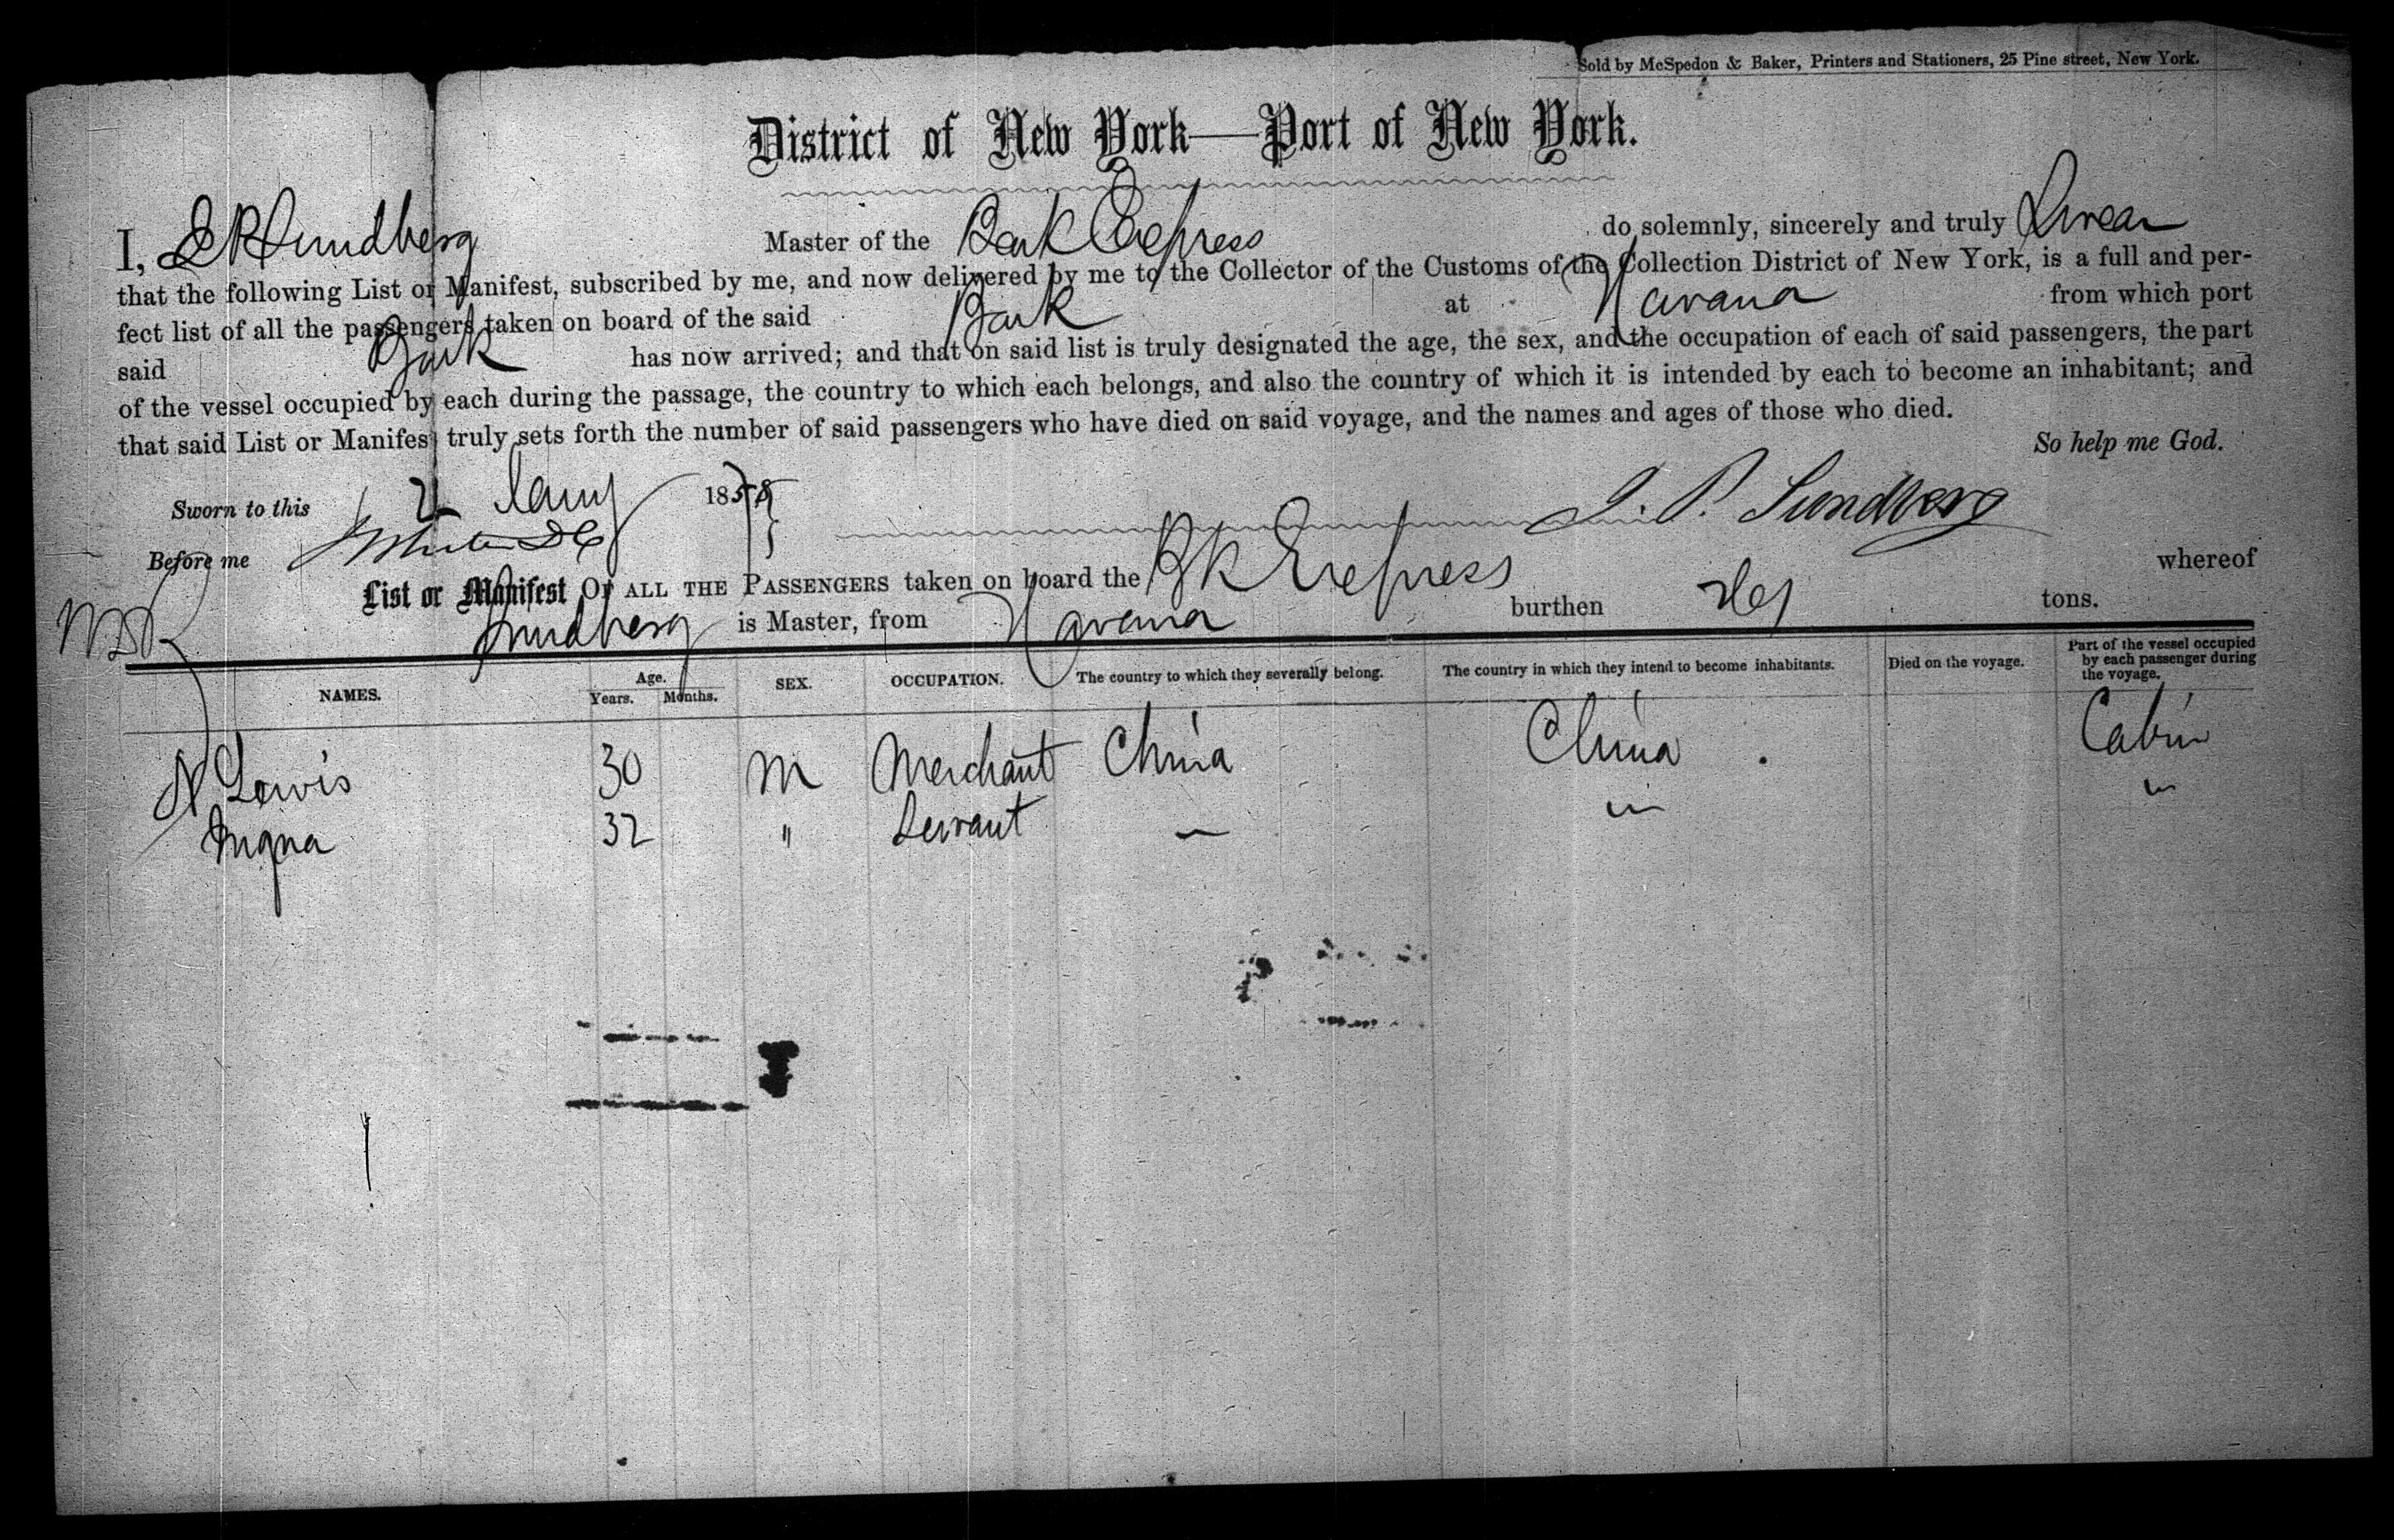 Sold by McSpedon & Baker, Printers and Stationers, 25 Pine street, New York.
District of New York—Port of New York.
I, Sundberg Master of the Bark Express do solemnly, sincerely and truly Swear
that the following List or Manifest, subscribed by me, and now delivered by me to the Collector of the Customs of the Collection District of New York, is a full and per-
fect list of all the passengers taken on board of the said Bark at Havana from which port
said Bark has now arrived; and that on said list is truly designated the age, the sex, and the occupation of each of said passengers, the part
of the vessel occupied by each during the passage, the country to which each belongs, and also the country of which it is intended by each to become an inhabitant; and
that said List or Manifest truly sets forth the number of said passengers who have died on said voyage, and the names and ages of those who died.
So help me God.
Sworn to this Jany 1858
J. P. Sundberg
Before me
List or Manifest OF ALL THE PASSENGERS taken on board the Bk Express burthen tons. whereof
Sundberg is Master, from Havana
NAMES. Age. Years. Months. SEX. OCCUPATION. The country to which they severally belong. The country in which they intend to become inhabitants. Died on the voyage. Part of the vessel occupied by each passenger during the voyage.
N Lewis 30 M Merchant China China Cabin
32 " Servant — "  "